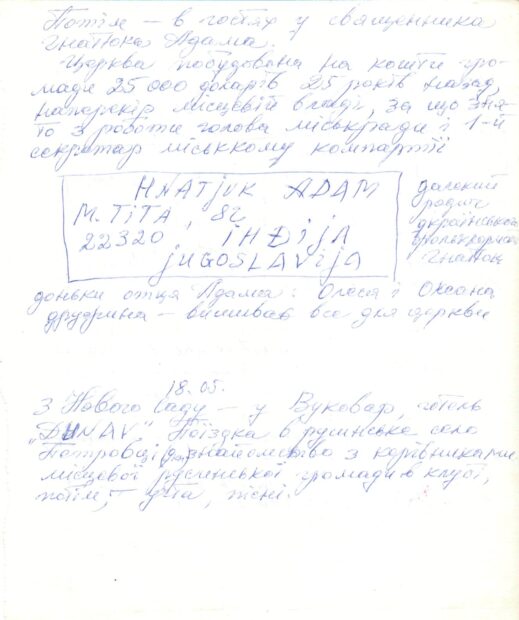 Потім — в гостях у священника
Гнатюка Адама.
Церква побудована на кошти гро-
мади 25 000 доларів 25 років назад,
наперекір місцевій владі, за що зня-
то з роботи голова міськради і 1-й
секретар міськкому компартії
HNATjUK ADAM
M. TiTA, 82
22320, iHĐijA
jUGOSLAVijA
далекий
родич
українського
фольклориста
Гнатюк
доньки отця Адама: Олеся і Оксана
дружина — вишиває все для церкви
18.05.
З Нового Саду — у Вуковар, готель
"DUNAV". Поїздка в русинське село
Петровці, знайомство з керівниками
місцевої русинської громади в клубі,
потім — пісні.